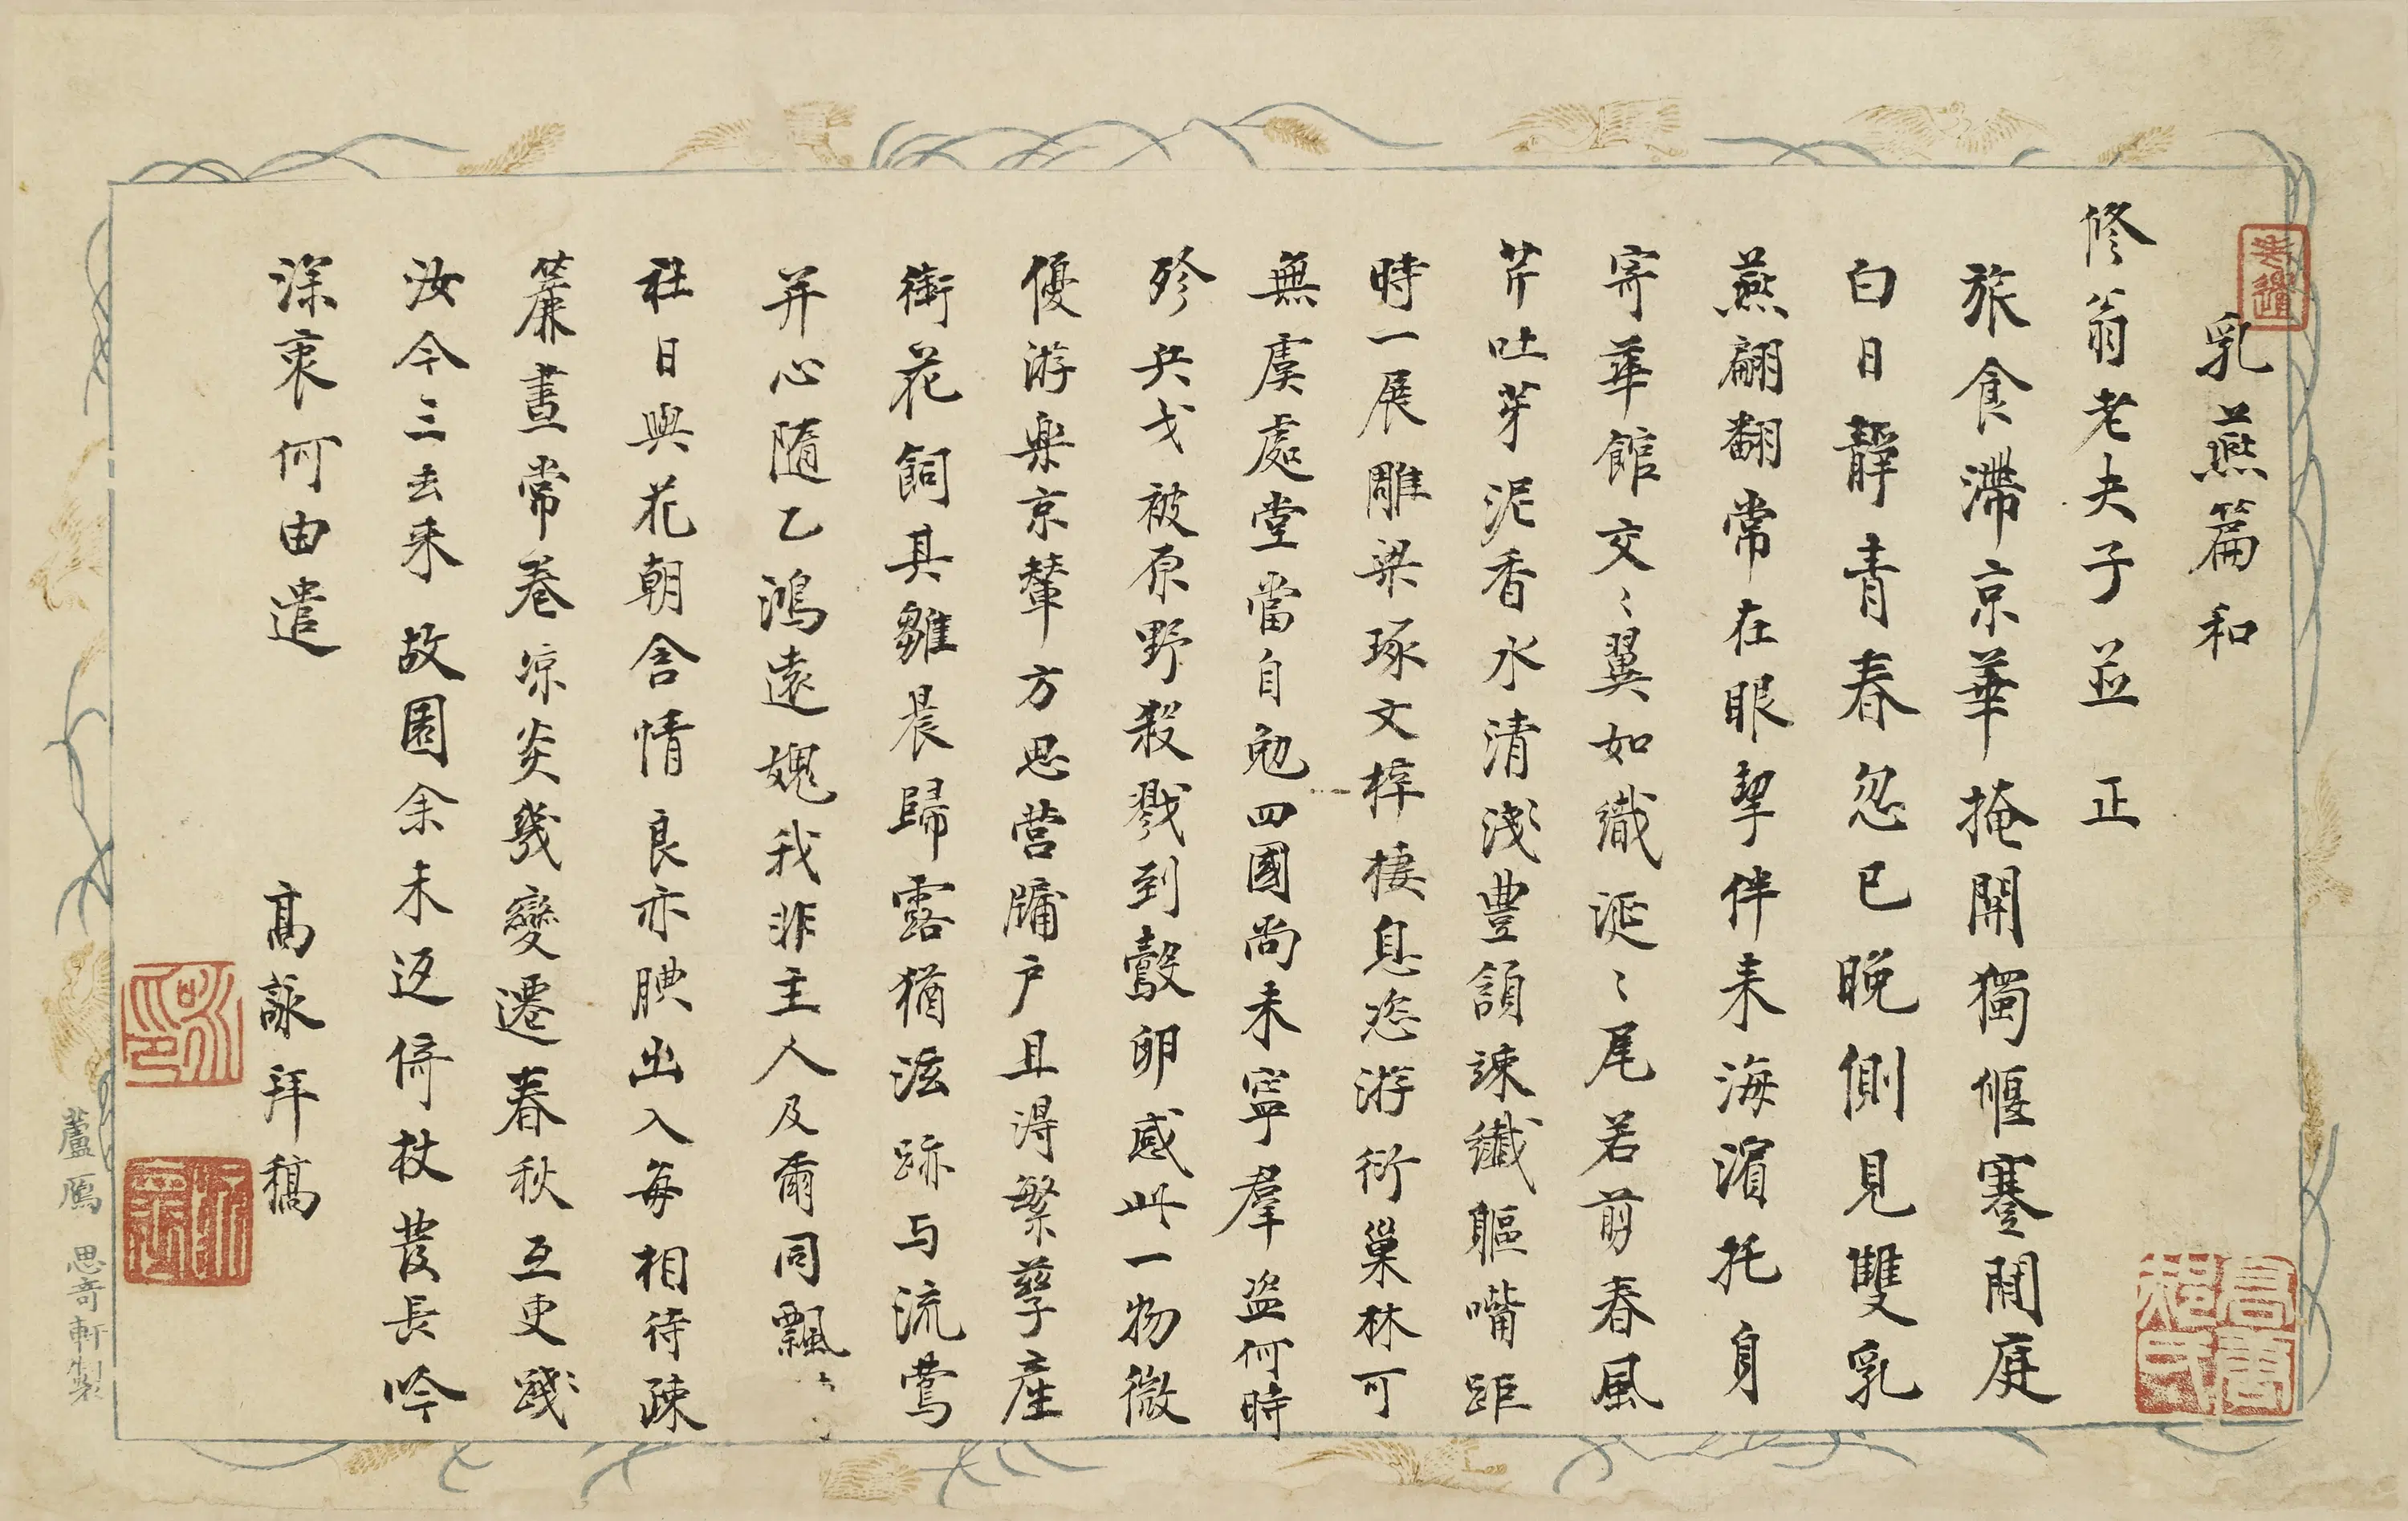 乳燕篇和
修翁老夫子並正
旅食滯京華掩關獨偃蹇閒庭
白日靜青春忽已晚側見雙乳
燕翩翻常在眼挈伴来海濵托身
寄華館交〻翼如織涎〻尾若剪春風
芹吐芽泥香水清淺豐頷竦纖軀嘴距
時一展雕梁琢文梓棲息恣游衍巢林可
無虞處堂當自勉四國尚未寧羣盗何時
殄兵戈被原野殺戮到鷇卵感此一物微
優游樂京輦方思营牖户且得繁孳產
銜花飼其雛晨歸露猶泫跡与流鶯
并心隨乙鴻遠媿我非主人及爾同飄
社日與花朝含情良亦腆出入每相待疎
簾晝常卷凉炎幾變遷春秋互更踐
汝今三去来故園余未返倚杖發長吟
深衷何由遣
高詠拜稿
蘆鴈 思奇軒製